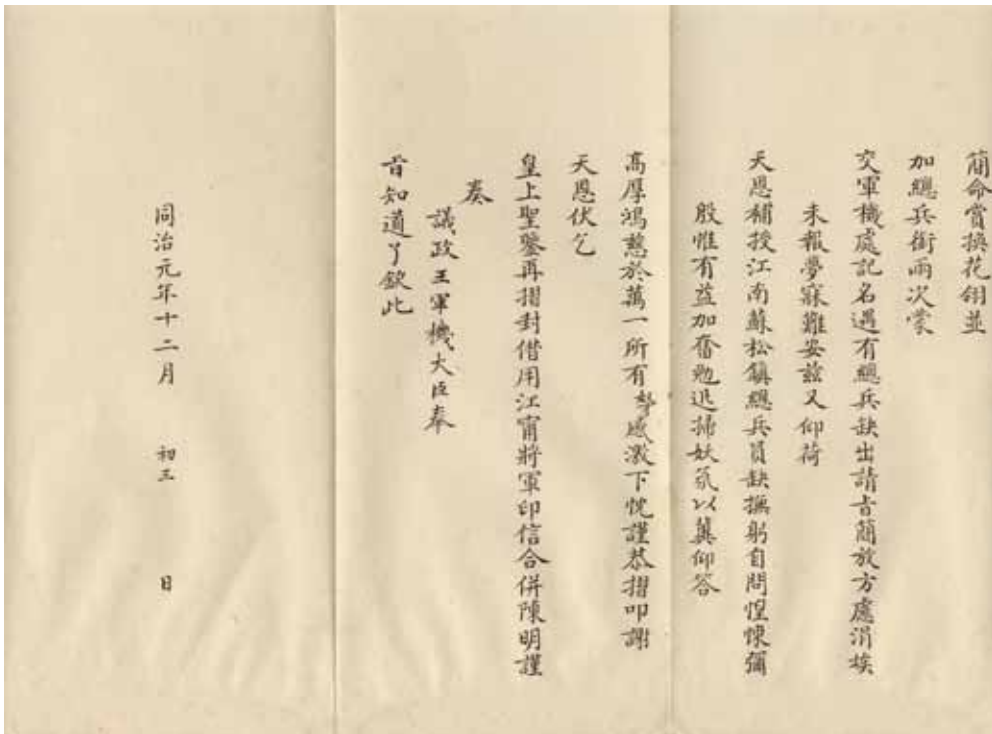 簡命賞換花翎並
加總兵銜兩次蒙
交軍機處記名遇有總兵缺出請旨簡放方慮涓埃
未報夢寐難安茲又仰荷
天恩補授江南蘇松鎮總兵員缺撫躬自問惶悚彌
殷惟有益加奮勉迅掃妖氛以冀仰答
高厚鴻慈於萬一所有感激下忱謹恭摺叩謝
天恩伏乞
皇上聖鑒再摺封借用江甯將軍印信合併陳明謹
奏
議政王軍機大臣奉
旨知道了欽此
同治元年十二月 初三 日